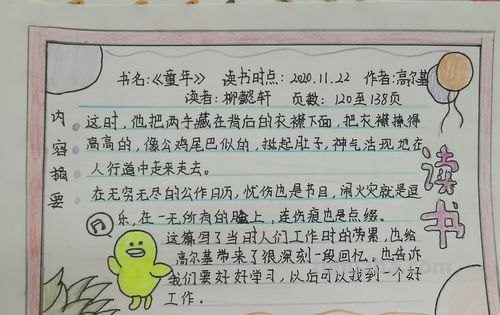 书名:《童年》 读书时点:2020.11.22 作者:高尔基
读者:柳懿轩 页数:120至138页
内容摘要
这时,他把两手藏在背后的衣襟下面,把衣襟撩得
高高的,像公鸡尾巴似的,挺起肚子,神气活现地在
人行道中走来走去。
在无穷无尽的公作日历,忧伤也是节日,闹火灾就是逗
乐,在一无所有的脸上,连伤痕也是点缀。
这篇写了当时人们工作时的劳累,也给
高尔基带来了很深刻一段回忆。也告诉
我们要好好学习,以后可以找到一个好
工作。
读书